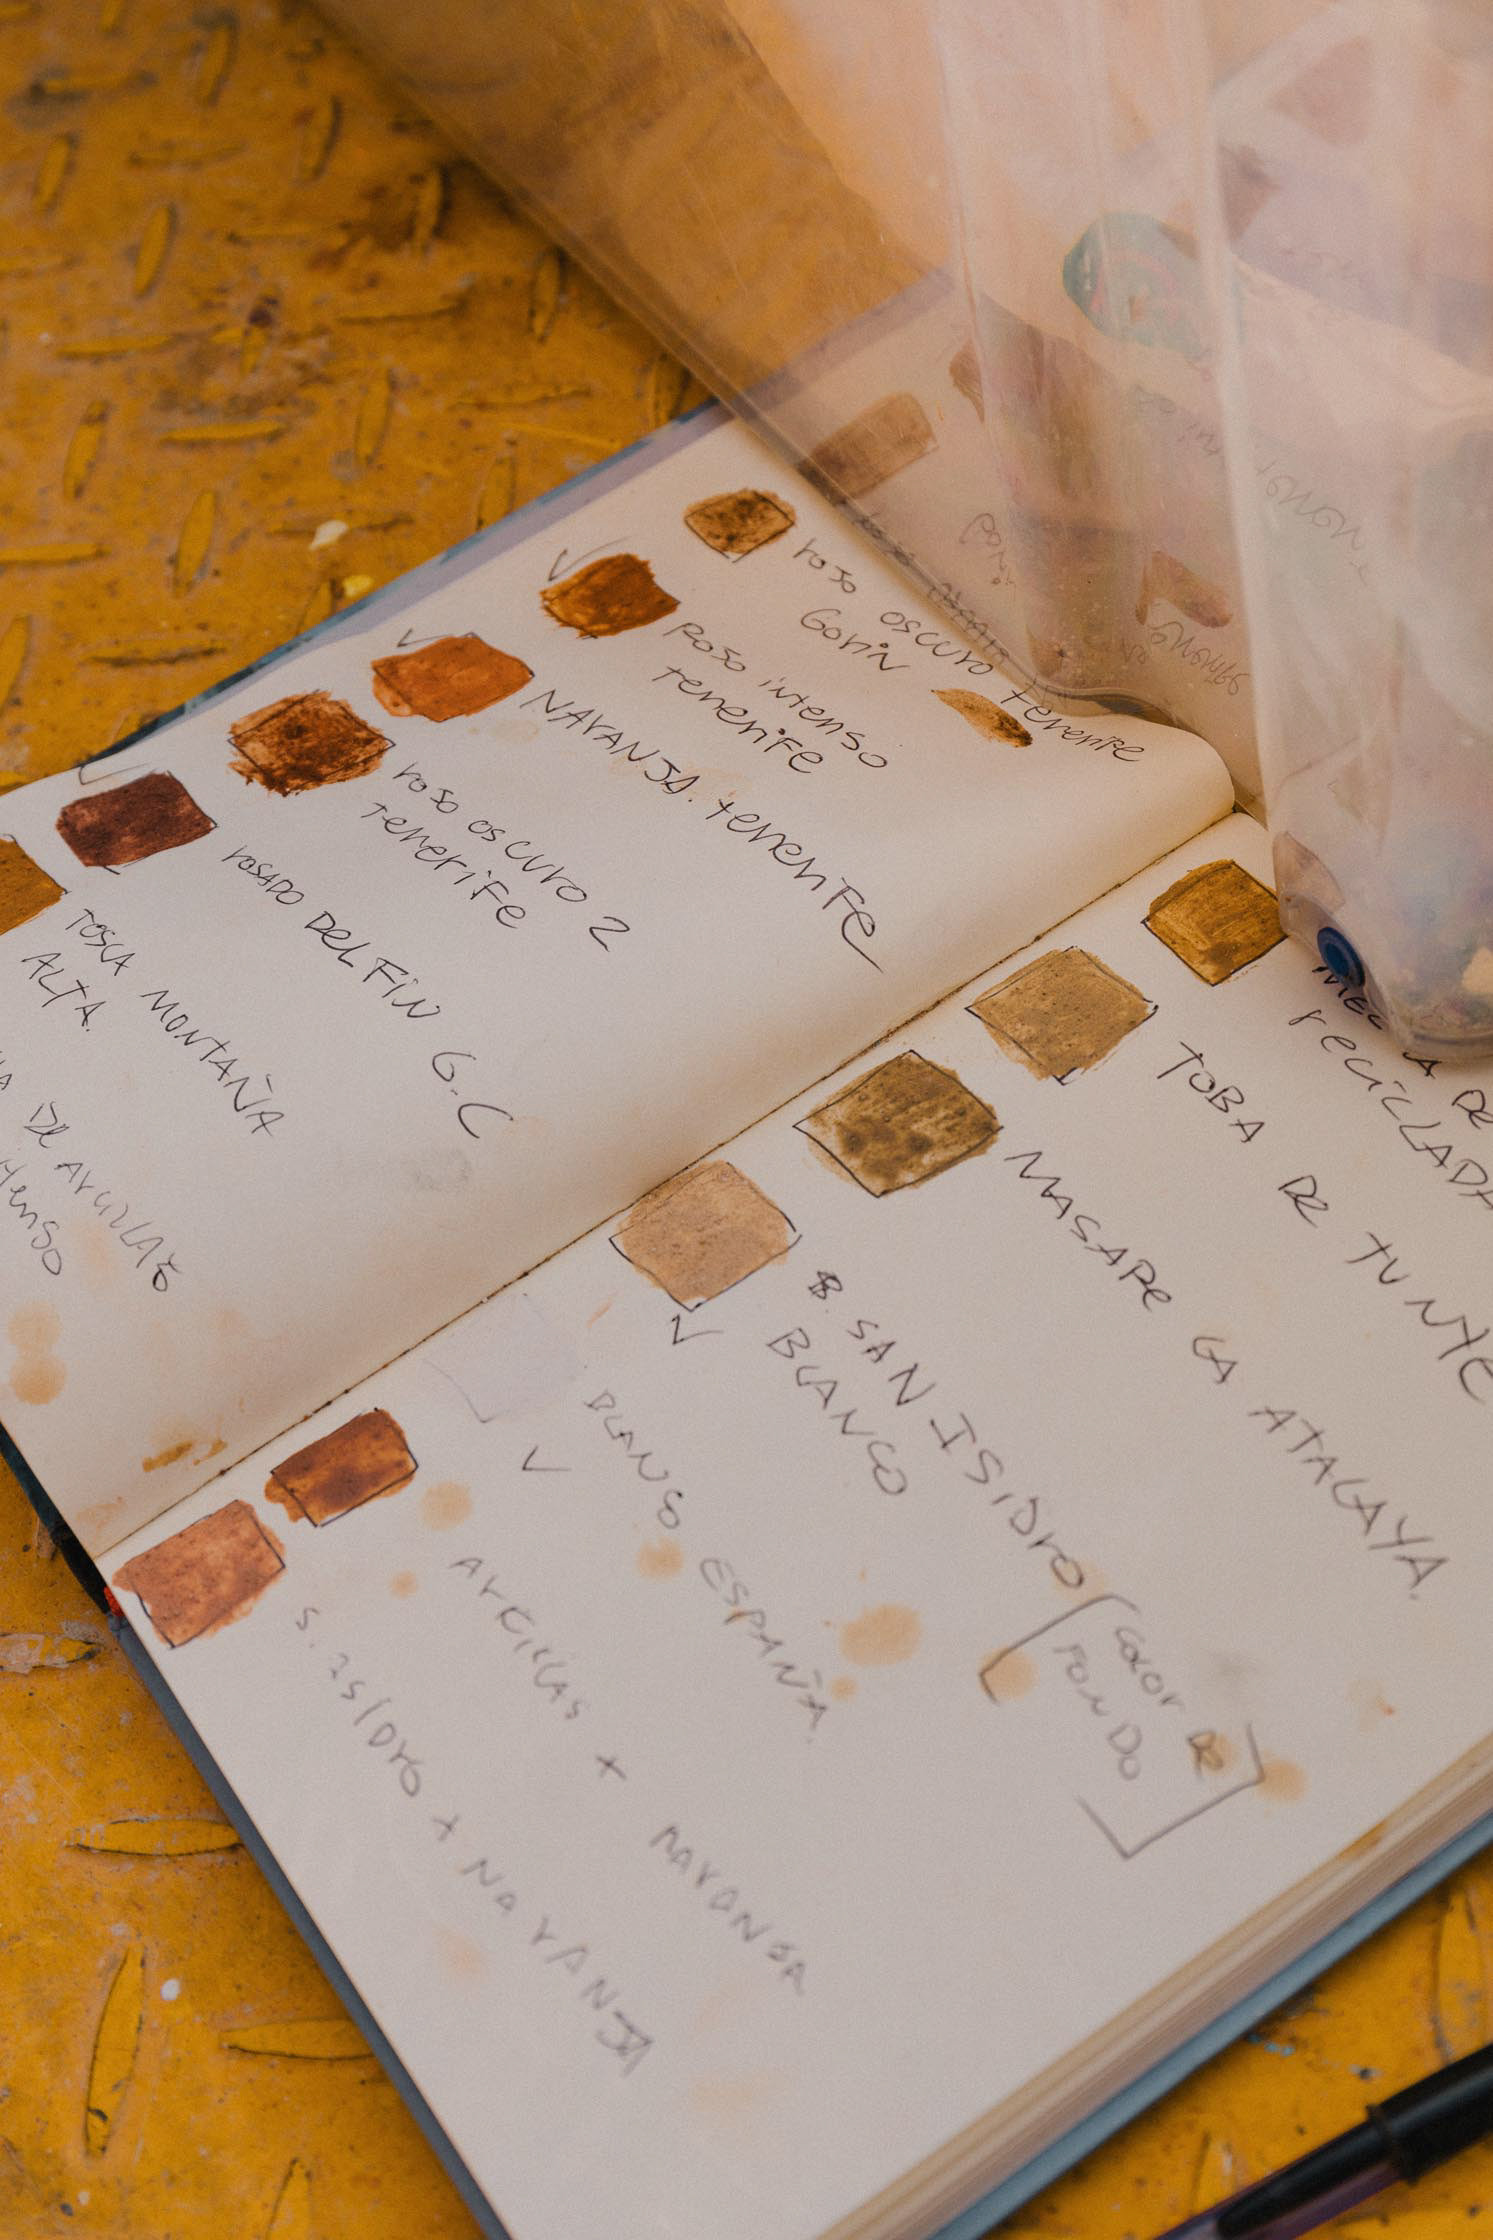 rojo oscuro tenerife
Gorin
rojo intenso
tenerife
NARANJA. tenerife
rojo oscuro 2
Tenerife
rosado DelFin G.C
TOSCA MONTAÑA
ALTA.
De arcillas
reciclada
TOBA DE TUNTE
MASAPE LA ATALAYA.
B. SAN ISIDro
BLANCO
[COLOr DE
FONDO]
BLANCO ESPAÑA.
ArCillas + naranja
S. ISIDro + NArANJA